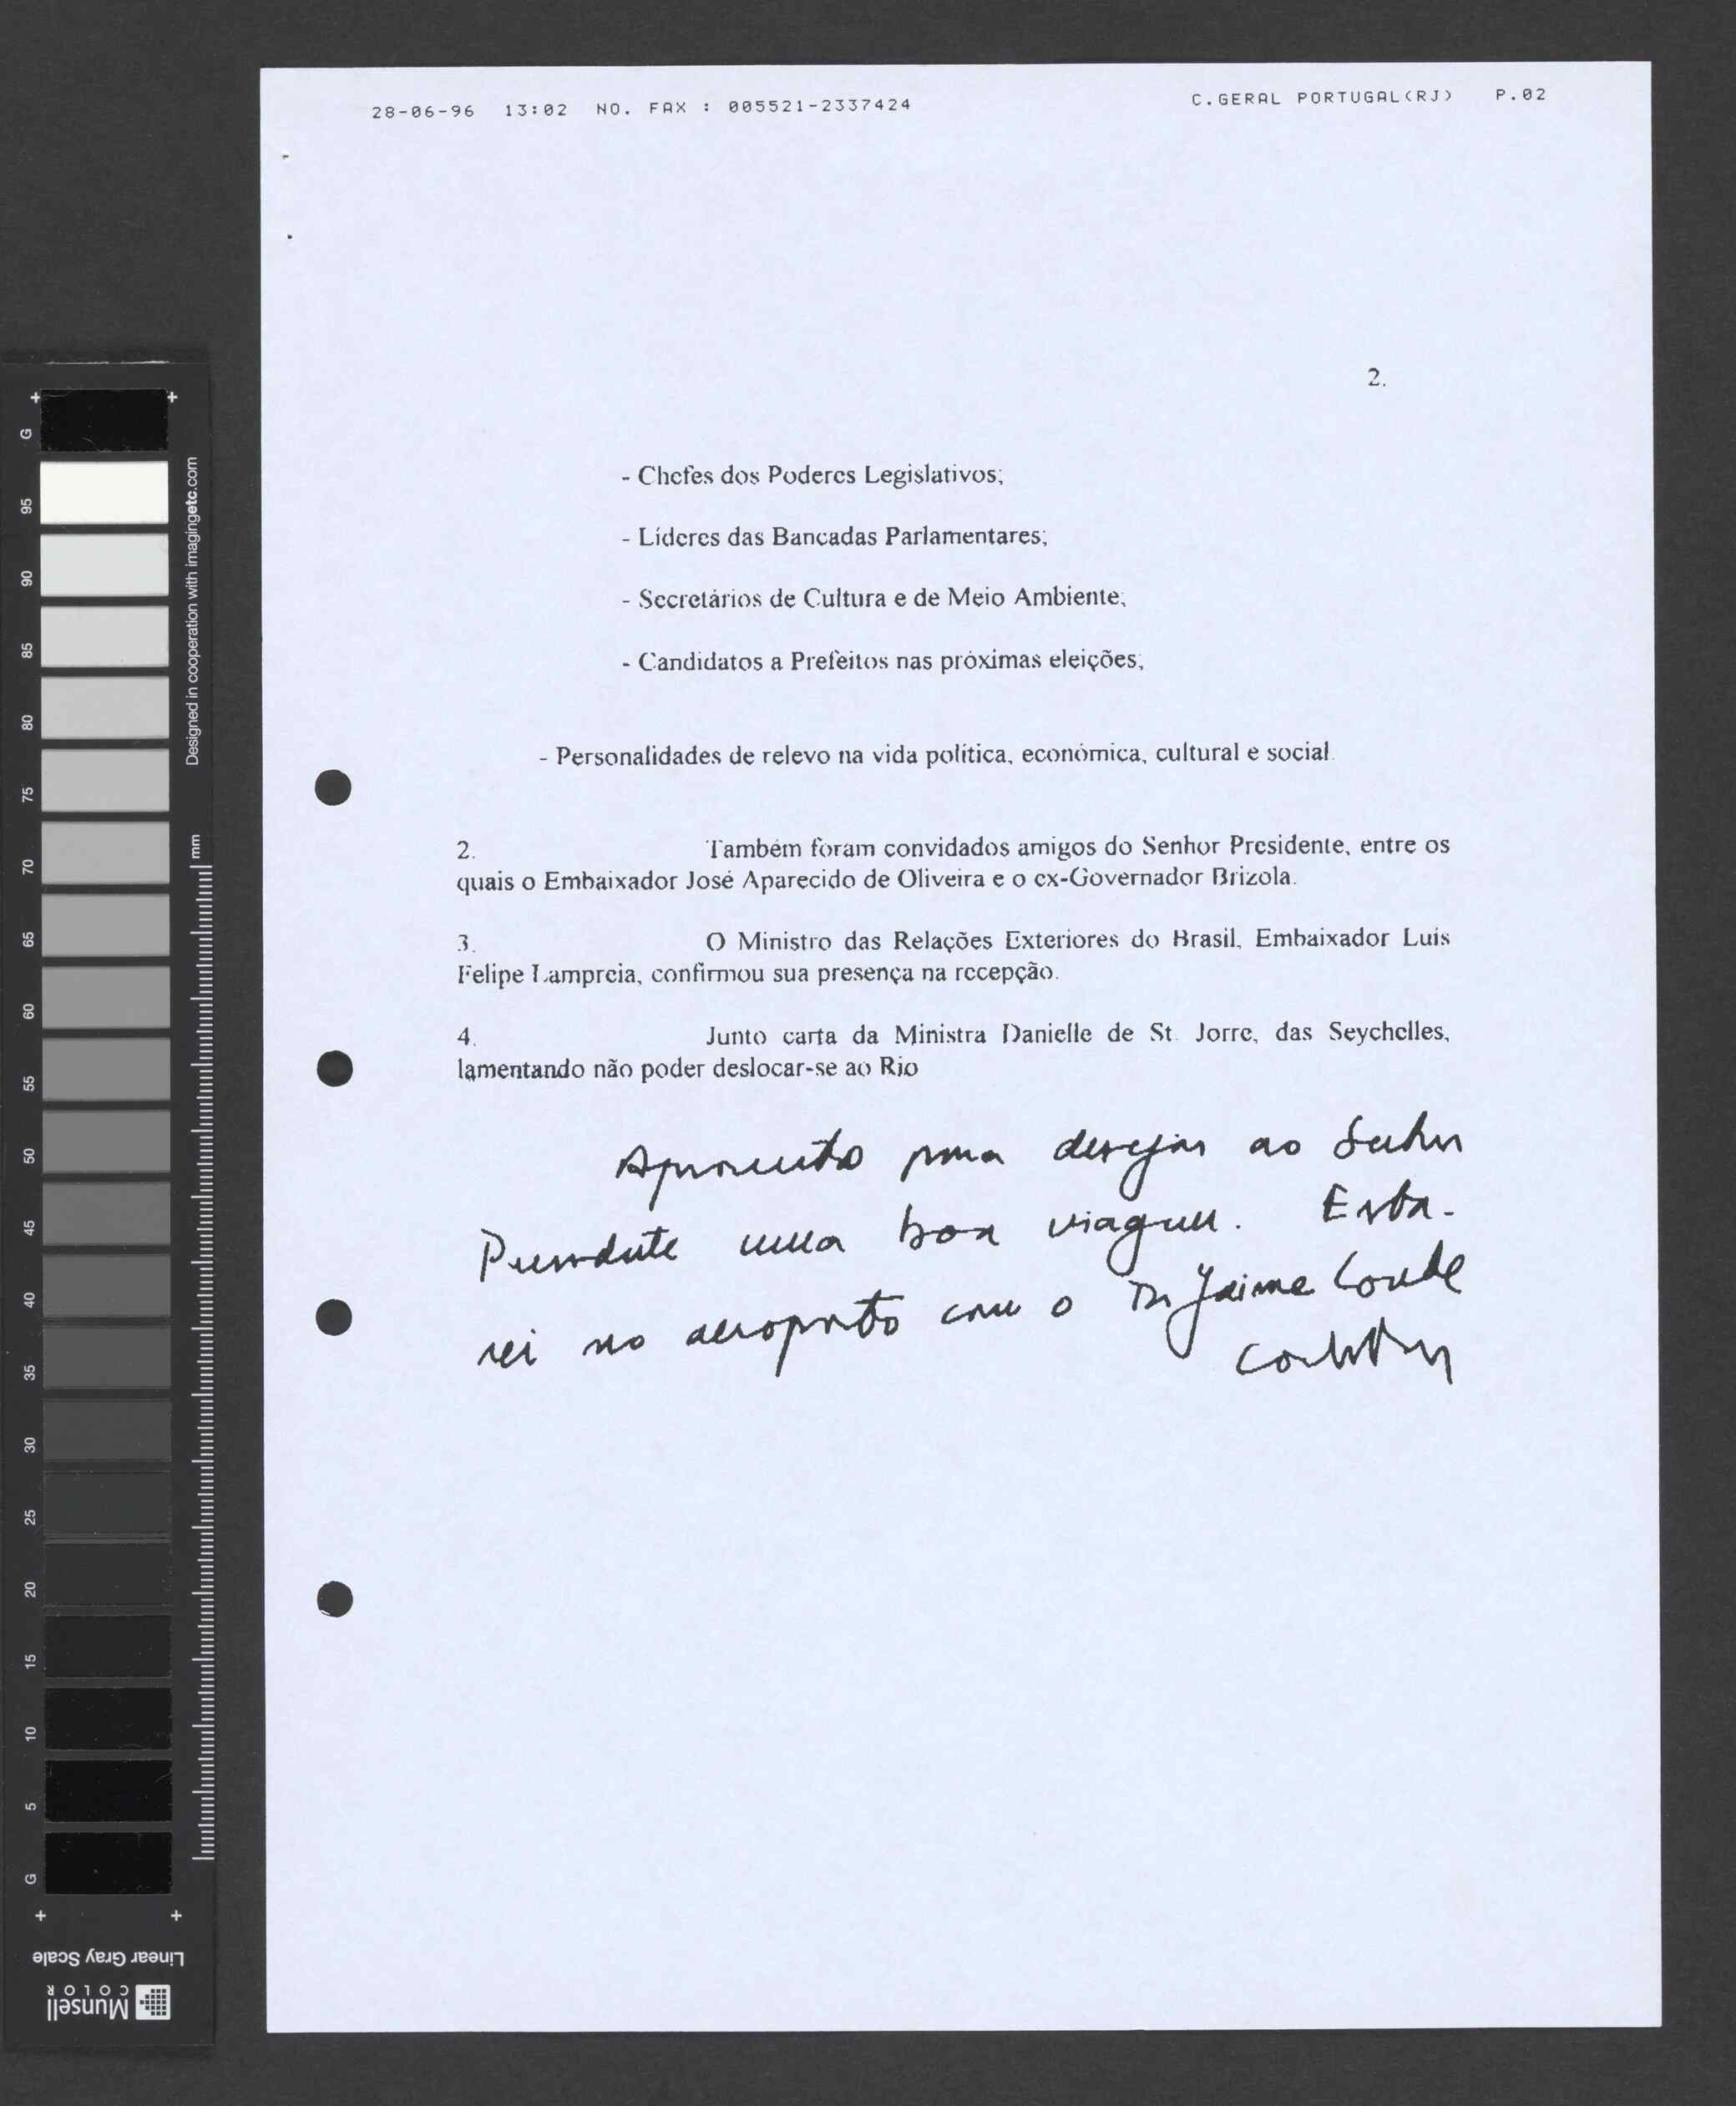 28-06-96 13:02 NO. FAX : 005521-2337424 C.GERAL PORTUGAL(RJ) P.02
2.
- Chefes dos Poderes Legislativos;
- Líderes das Bancadas Parlamentares;
- Secretários de Cultura e de Meio Ambiente;
- Candidatos a Prefeitos nas próximas eleições;
- Personalidades de relevo na vida política, económica, cultural e social.
2. Também foram convidados amigos do Senhor Presidente, entre os
quais o Embaixador José Aparecido de Oliveira e o ex-Governador Brizola.
3. O Ministro das Relações Exteriores do Brasil, Embaixador Luis
Felipe Lampreia, confirmou sua presença na recepção.
4. Junto carta da Ministra Danielle de St. Jorre, das Seychelles,
lamentando não poder deslocar-se ao Rio
Aproveito para desejar ao Senhor
Presidente uma boa viagem. Esta-
rei no aeroporto com o Dr Jaime Conde
G 95 90 85 80 75 70 65 60 55 50 45 40 35 30 25 20 15 10 5 G
Designed in cooperation with imagingetc.com
mm
Linear Gray Scale
Munsell
COLOR